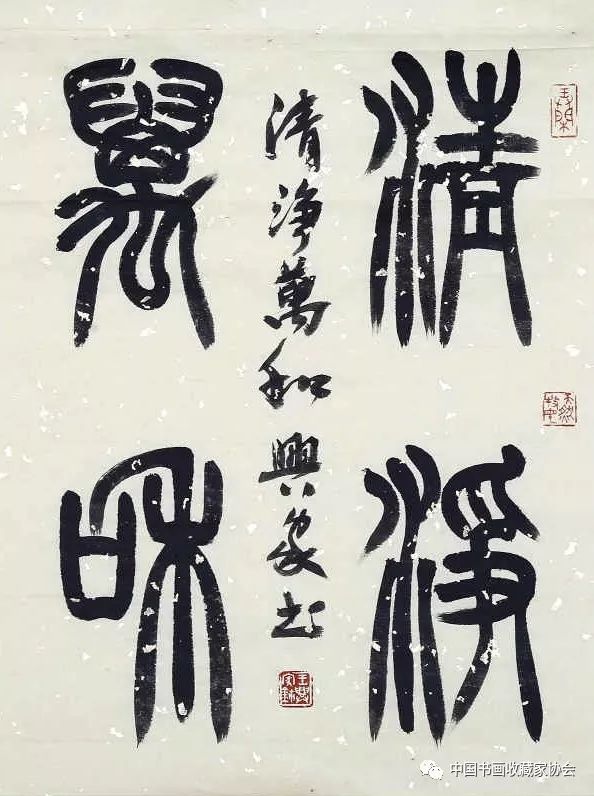 清淨
萬和
清淨萬和興家书
中国书画收藏家协会